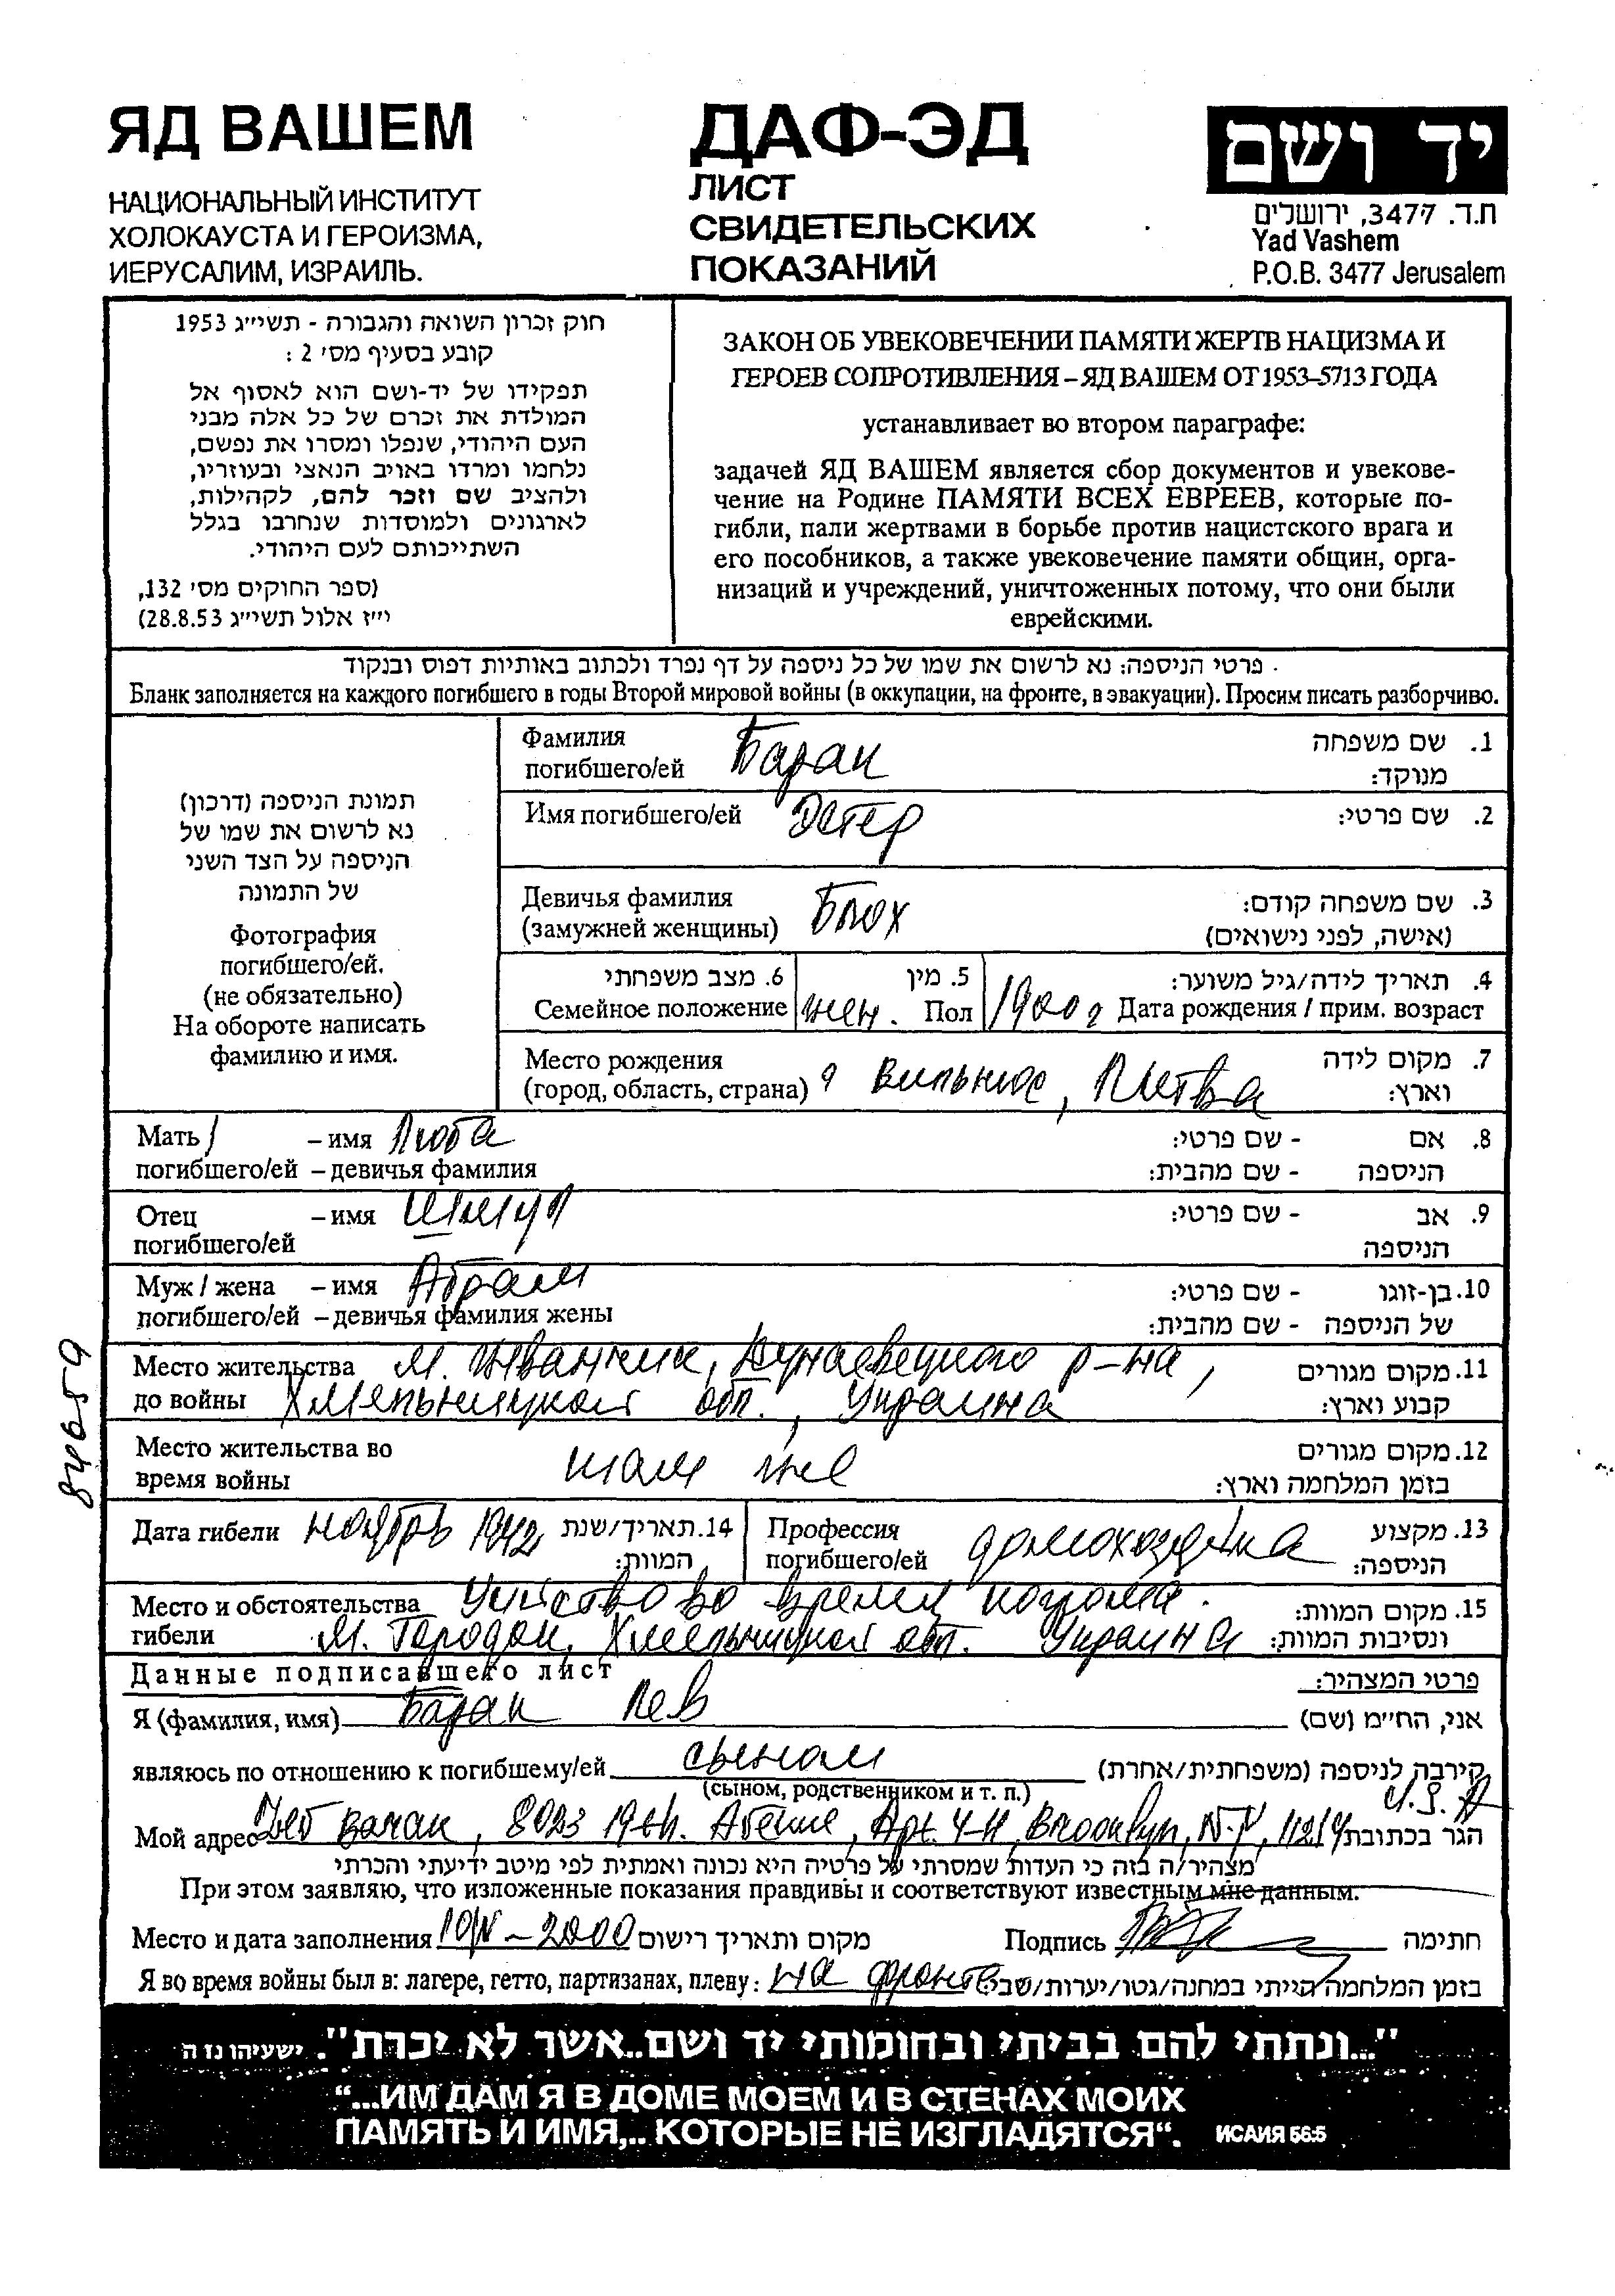 ЯД ВАШЕМ
НАЦИОНАЛЬНЫЙ ИНСТИТУТ
ХОЛОКАУСТА И ГЕРОИЗМА,
ИЕРУСАЛИМ, ИЗРАИЛЬ.
ДАФ-ЭД
ЛИСТ
СВИДЕТЕЛЬСКИХ
ПОКАЗАНИЙ
יד ושם
ת.ד. 3477, ירושלים
Yad Vashem
P.O.B. 3477 Jerusalem
חוק זכרון השואה והגבורה - תשי״ג 1953
קובע בסעיף מס׳ 2 :
תפקידו של יד-ושם הוא לאסוף אל
המולדת את זכרם של כל אלה מבני
העם היהודי, שנפלו ומסרו את נפשם,
נלחמו ומרדו באויב הנאצי ובעוזריו,
ולהציב שם וזכר להם, לקהילות,
לארגונים ולמוסדות שנחרבו בגלל
השתייכותם לעם היהודי.
(ספר החוקים מס׳ 132,
י״ז אלול תשי״ג 28.8.53)
ЗАКОН ОБ УВЕКОВЕЧЕНИИ ПАМЯТИ ЖЕРТВ НАЦИЗМА И
ГЕРОЕВ СОПРОТИВЛЕНИЯ – ЯД ВАШЕМ ОТ 1953–5713 ГОДА
устанавливает во втором параграфе:
задачей ЯД ВАШЕМ является сбор документов и увекове-
чение на Родине ПАМЯТИ ВСЕХ ЕВРЕЕВ, которые по-
гибли, пали жертвами в борьбе против нацистского врага и
его пособников, а также увековечение памяти общин, орга-
низаций и учреждений, уничтоженных потому, что они были
еврейскими.
פרטי הניספה: נא לרשום את שמו של כל ניספה על דף נפרד ולכתוב באותיות דפוס ובנקוד
Бланк заполняется на каждого погибшего в годы Второй мировой войны (в оккупации, на фронте, в эвакуации). Просим писать разборчиво.
תמונת הניספה (דרכון)
נא לרשום את שמו של
הניספה על הצד השני
של התמונה
Фотография
погибшего/ей.
(не обязательно)
На обороте написать
фамилию и имя.
Фамилия погибшего/ей Баран 1. שם משפחה
מנוקד:
Имя погибшего/ей Эстер 2. שם פרטי:
Девичья фамилия Блох 3. שם משפחה קודם:
(замужней женщины) (אישה, לפני נישואים)
6. מצב משפחתי 5. מין 4. תאריך לידה/גיל משוער:
Семейное положение жен. Пол 1900 г Дата рождения / прим. возраст
Место рождения 7. מקום לידה
(город, область, страна) г Вильнюс, Литва וארץ:
Мать – имя Люба 8. אם - שם פרטי:
погибшего/ей – девичья фамилия הניספה - שם מהבית:
Отец – имя Шмул 9. אב - שם פרטי:
погибшего/ей הניספה
Муж / жена – имя Абрам 10. בן-זוגו - שם פרטי:
погибшего/ей – девичья фамилия жены של הניספה - שם מהבית:
Место жительства м. Иванкии, Дунаевецкого р-на, 11. מקום מגורים
до войны Хмельницкой обл., Украина קבוע וארץ:
Место жительства во 12. מקום מגורים
время войны там же בזמן המלחמה וארץ:
Дата гибели ноябрь 1942 14. תאריך/שנת המוות:
Профессия погибшего/ей домохозяйка 13. מקצוע הניספה:
Место и обстоятельства Убийство во время погрома. 15. מקום המוות:
гибели м. Городок, Хмельницкой обл. Украина ונסיבות המוות:
Данные подписавшего лист פרטי המצהיר:
Я (фамилия, имя) Баран Лев אני, הח״מ (שם)
являюсь по отношению к погибшему/ей сыном קירבה לניספה (משפחתית/אחרת)
(сыном, родственником и т. п.)
U.S.A
Мой адрес Lev Baran, 8023 19th. Avenue, Apt. 4-H, Brooklyn, N-Y, 11214 הגר בכתובת
מצהיר/ה בזה כי העדות שמסרתי על פרטיה היא נכונה ואמתית לפי מיטב ידיעתי והכרתי
При этом заявляю, что изложенные показания правдивы и соответствуют известным мне данным.
Место и дата заполнения 10/IV - 2000 מקום ותאריך רישום Подпись חתימה
Я во время войны был в: лагере, гетто, партизанах, плену: на фронте בזמן המלחמה הייתי במחנה/גטו/יערות/שבי
"...ונתתי להם בביתי ובחומותי יד ושם..אשר לא יכרת". ישעיהו נז ה
“...ИМ ДАМ Я В ДОМЕ МОЕМ И В СТЕНАХ МОИХ
ПАМЯТЬ И ИМЯ,.. КОТОРЫЕ НЕ ИЗГЛАДЯТСЯ“. ИСАИЯ 56:5
84659